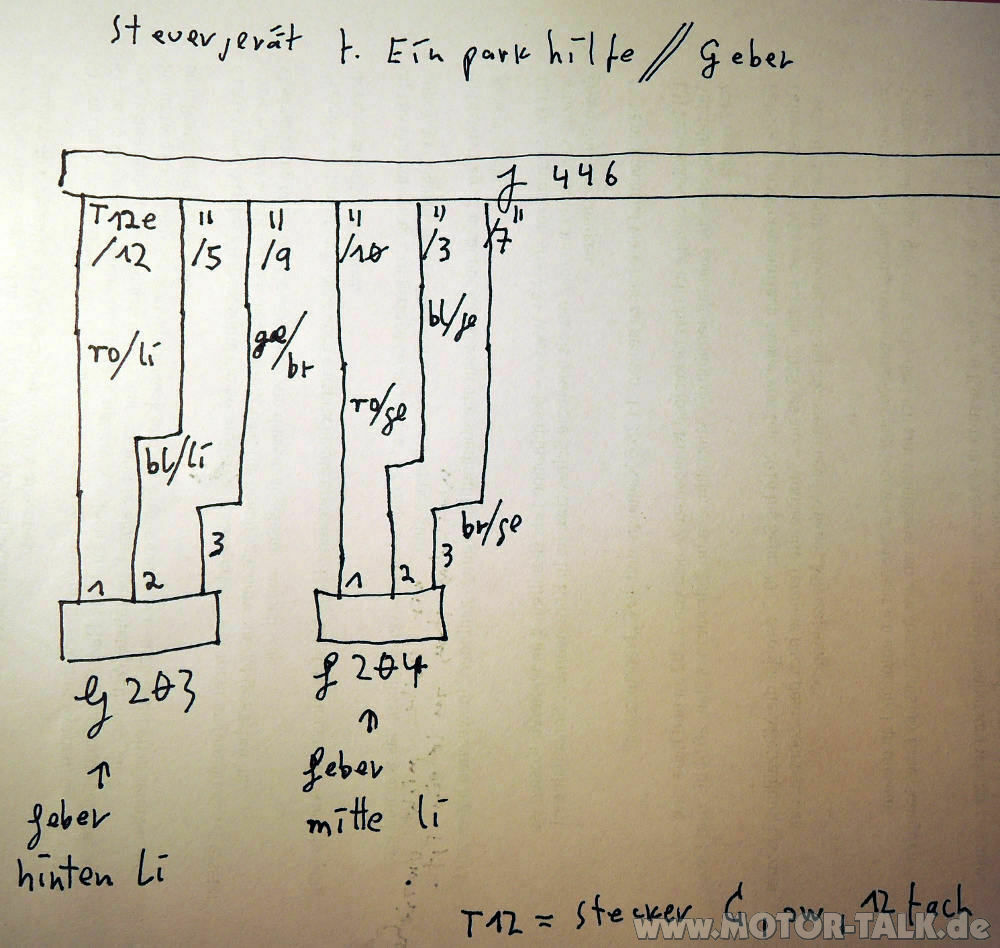 Steuergerät f. Einparkhilfe // Geber
J 446
T12e " " " " "
/12 /5 /9 /10 /3 /7
bl/ge
ro/li ge/br
ro/ge
bl/li
br/ge
3 3
1 2 1 2
G 203 G 204
↑ ↑
Geber Geber
hinten li mitte li
T12 = Stecker, 12fach
www.MOTOR-TALK.de